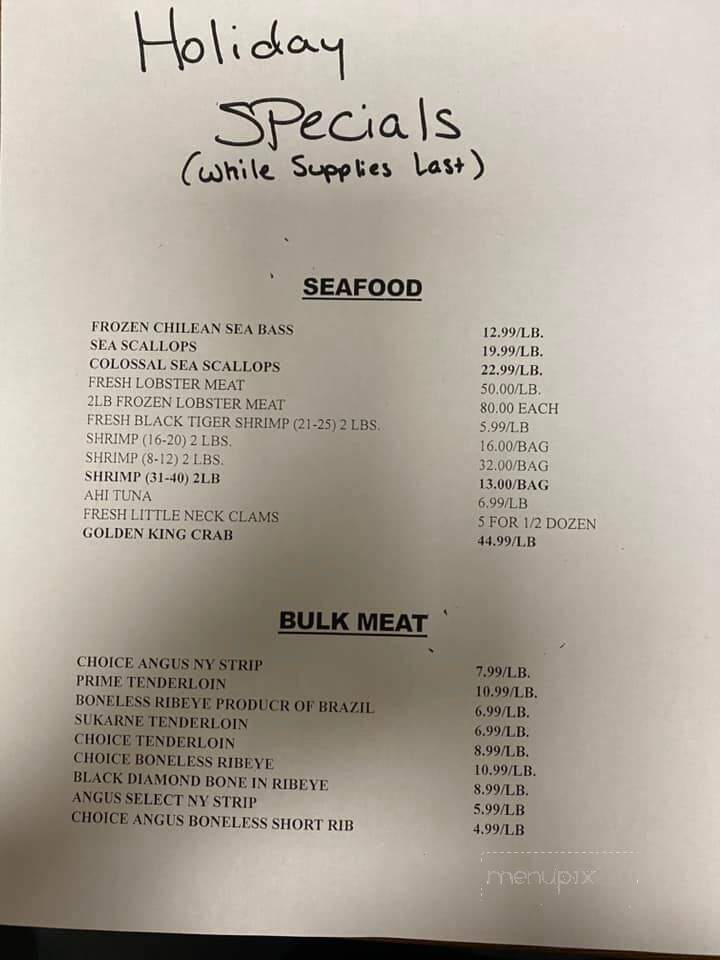 Holiday
Specials
(while Supplies Last)
SEAFOOD
FROZEN CHILEAN SEA BASS 12.99/LB.
SEA SCALLOPS 19.99/LB.
COLOSSAL SEA SCALLOPS 22.99/LB.
FRESH LOBSTER MEAT 50.00/LB.
2LB FROZEN LOBSTER MEAT 80.00 EACH
FRESH BLACK TIGER SHRIMP (21-25) 2 LBS. 5.99/LB
SHRIMP (16-20) 2 LBS. 16.00/BAG
SHRIMP (8-12) 2 LBS. 32.00/BAG
SHRIMP (31-40) 2LB 13.00/BAG
AHI TUNA 6.99/LB
FRESH LITTLE NECK CLAMS 5 FOR 1/2 DOZEN
GOLDEN KING CRAB 44.99/LB
BULK MEAT
CHOICE ANGUS NY STRIP 7.99/LB.
PRIME TENDERLOIN 10.99/LB.
BONELESS RIBEYE PRODUCR OF BRAZIL 6.99/LB.
SUKARNE TENDERLOIN 6.99/LB.
CHOICE TENDERLOIN 8.99/LB.
CHOICE BONELESS RIBEYE 10.99/LB.
BLACK DIAMOND BONE IN RIBEYE 8.99/LB.
ANGUS SELECT NY STRIP 5.99/LB
CHOICE ANGUS BONELESS SHORT RIB 4.99/LB
menupix